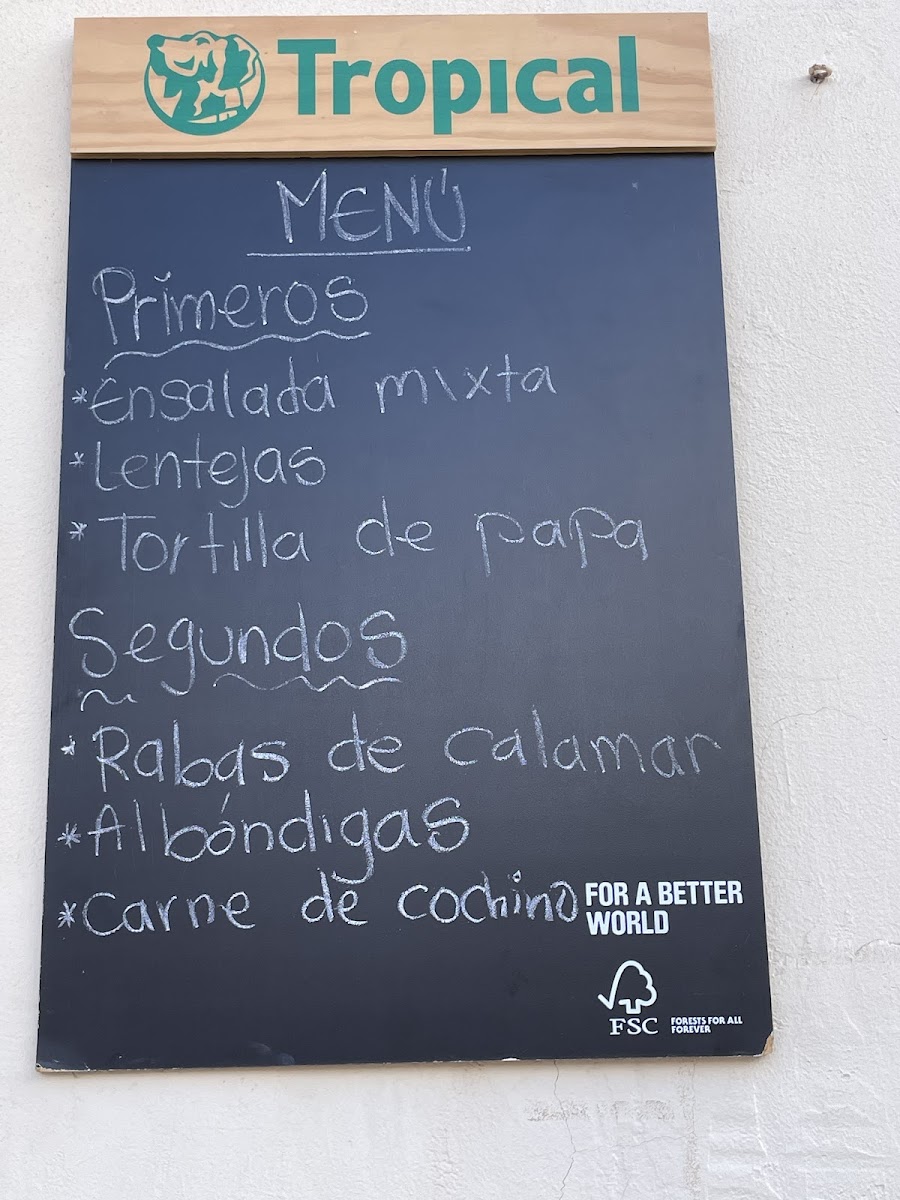 Tropical
MENÚ
Primeros
*Ensalada mixta
*Lentejas
*Tortilla de papa
Segundos
*Rabas de calamar
*Albóndigas
*Carne de cochino
FOR A BETTER
WORLD
FSC
FORESTS FOR ALL
FOREVER